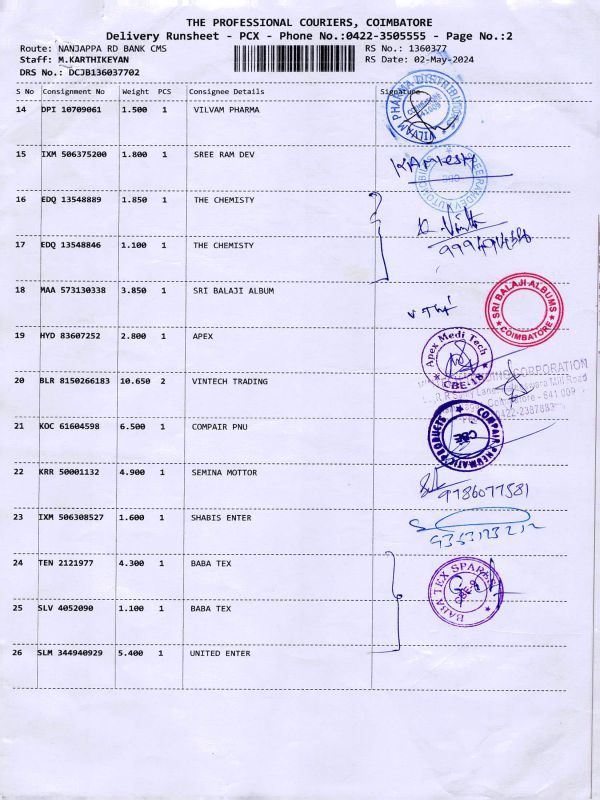 THE PROFESSIONAL COURIERS, COIMBATORE
Delivery Runsheet - PCX - Phone No.:0422-3505555 - Page No.:2
Route: NANJAPPA RD BANK CMS RS No.: 1360377
Staff: M.KARTHIKEYAN RS Date: 02-May-2024
DRS No.: DCJB136037702
S No Consignment No Weight PCS Consignee Details Signature
14 DPI 10709061 1.500 1 VILVAM PHARMA
VILVAM PHARMA DISTRIBUTORS
COIMBATORE
641009
15 IXM 506375200 1.800 1 SREE RAM DEV
KAMLESH
16 EDQ 13548889 1.850 1 THE CHEMISTY
17 EDQ 13548846 1.100 1 THE CHEMISTY
18 MAA 573130338 3.850 1 SRI BALAJI ALBUM
SRI BALAJI ALBUMS
COIMBATORE
19 HYD 83607252 2.800 1 APEX
Apex Medi Tech
CBE-18
20 BLR 8150266183 10.650 2 VINTECH TRADING
CORPORATION
Mill Road
Coimbatore - 641 009
0422-2387883
21 KOC 61604598 6.500 1 COMPAIR PNU
COMPAIR PNEUMATIC PRODUCTS
CBE
22 KRR 50001132 4.900 1 SEMINA MOTTOR
9786077581
23 IXM 506308527 1.600 1 SHABIS ENTER
24 TEN 2121977 4.300 1 BABA TEX
BABA TEX SPARES
25 SLV 4052090 1.100 1 BABA TEX
26 SLM 344940929 5.400 1 UNITED ENTER